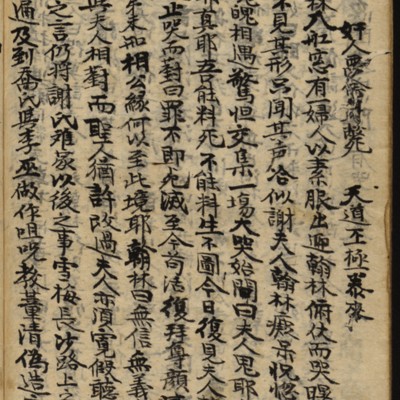 奸人惡斃 天道至極
林入舡窓有一婦人以素服出迎翰林俯伏而哭
不見其形只聞其声恰似謝夫人翰林癡呆怳惚
魄相遇驚怛交集一場大哭始開曰夫人鬼耶
耶真耶吾能料死不能料生不圖今日復見夫人
止哭而對曰罪不即死滅至今苟活復拜尊顔
未知相公緣何以至此境耶翰林曰無信無義
與夫人相對而聖人猶許改過夫人亦須寬假聽
之言仍將謝氏離家以後之事雪梅長沙路上
遍及到喬氏與李巫做作咀呪教董清偽造